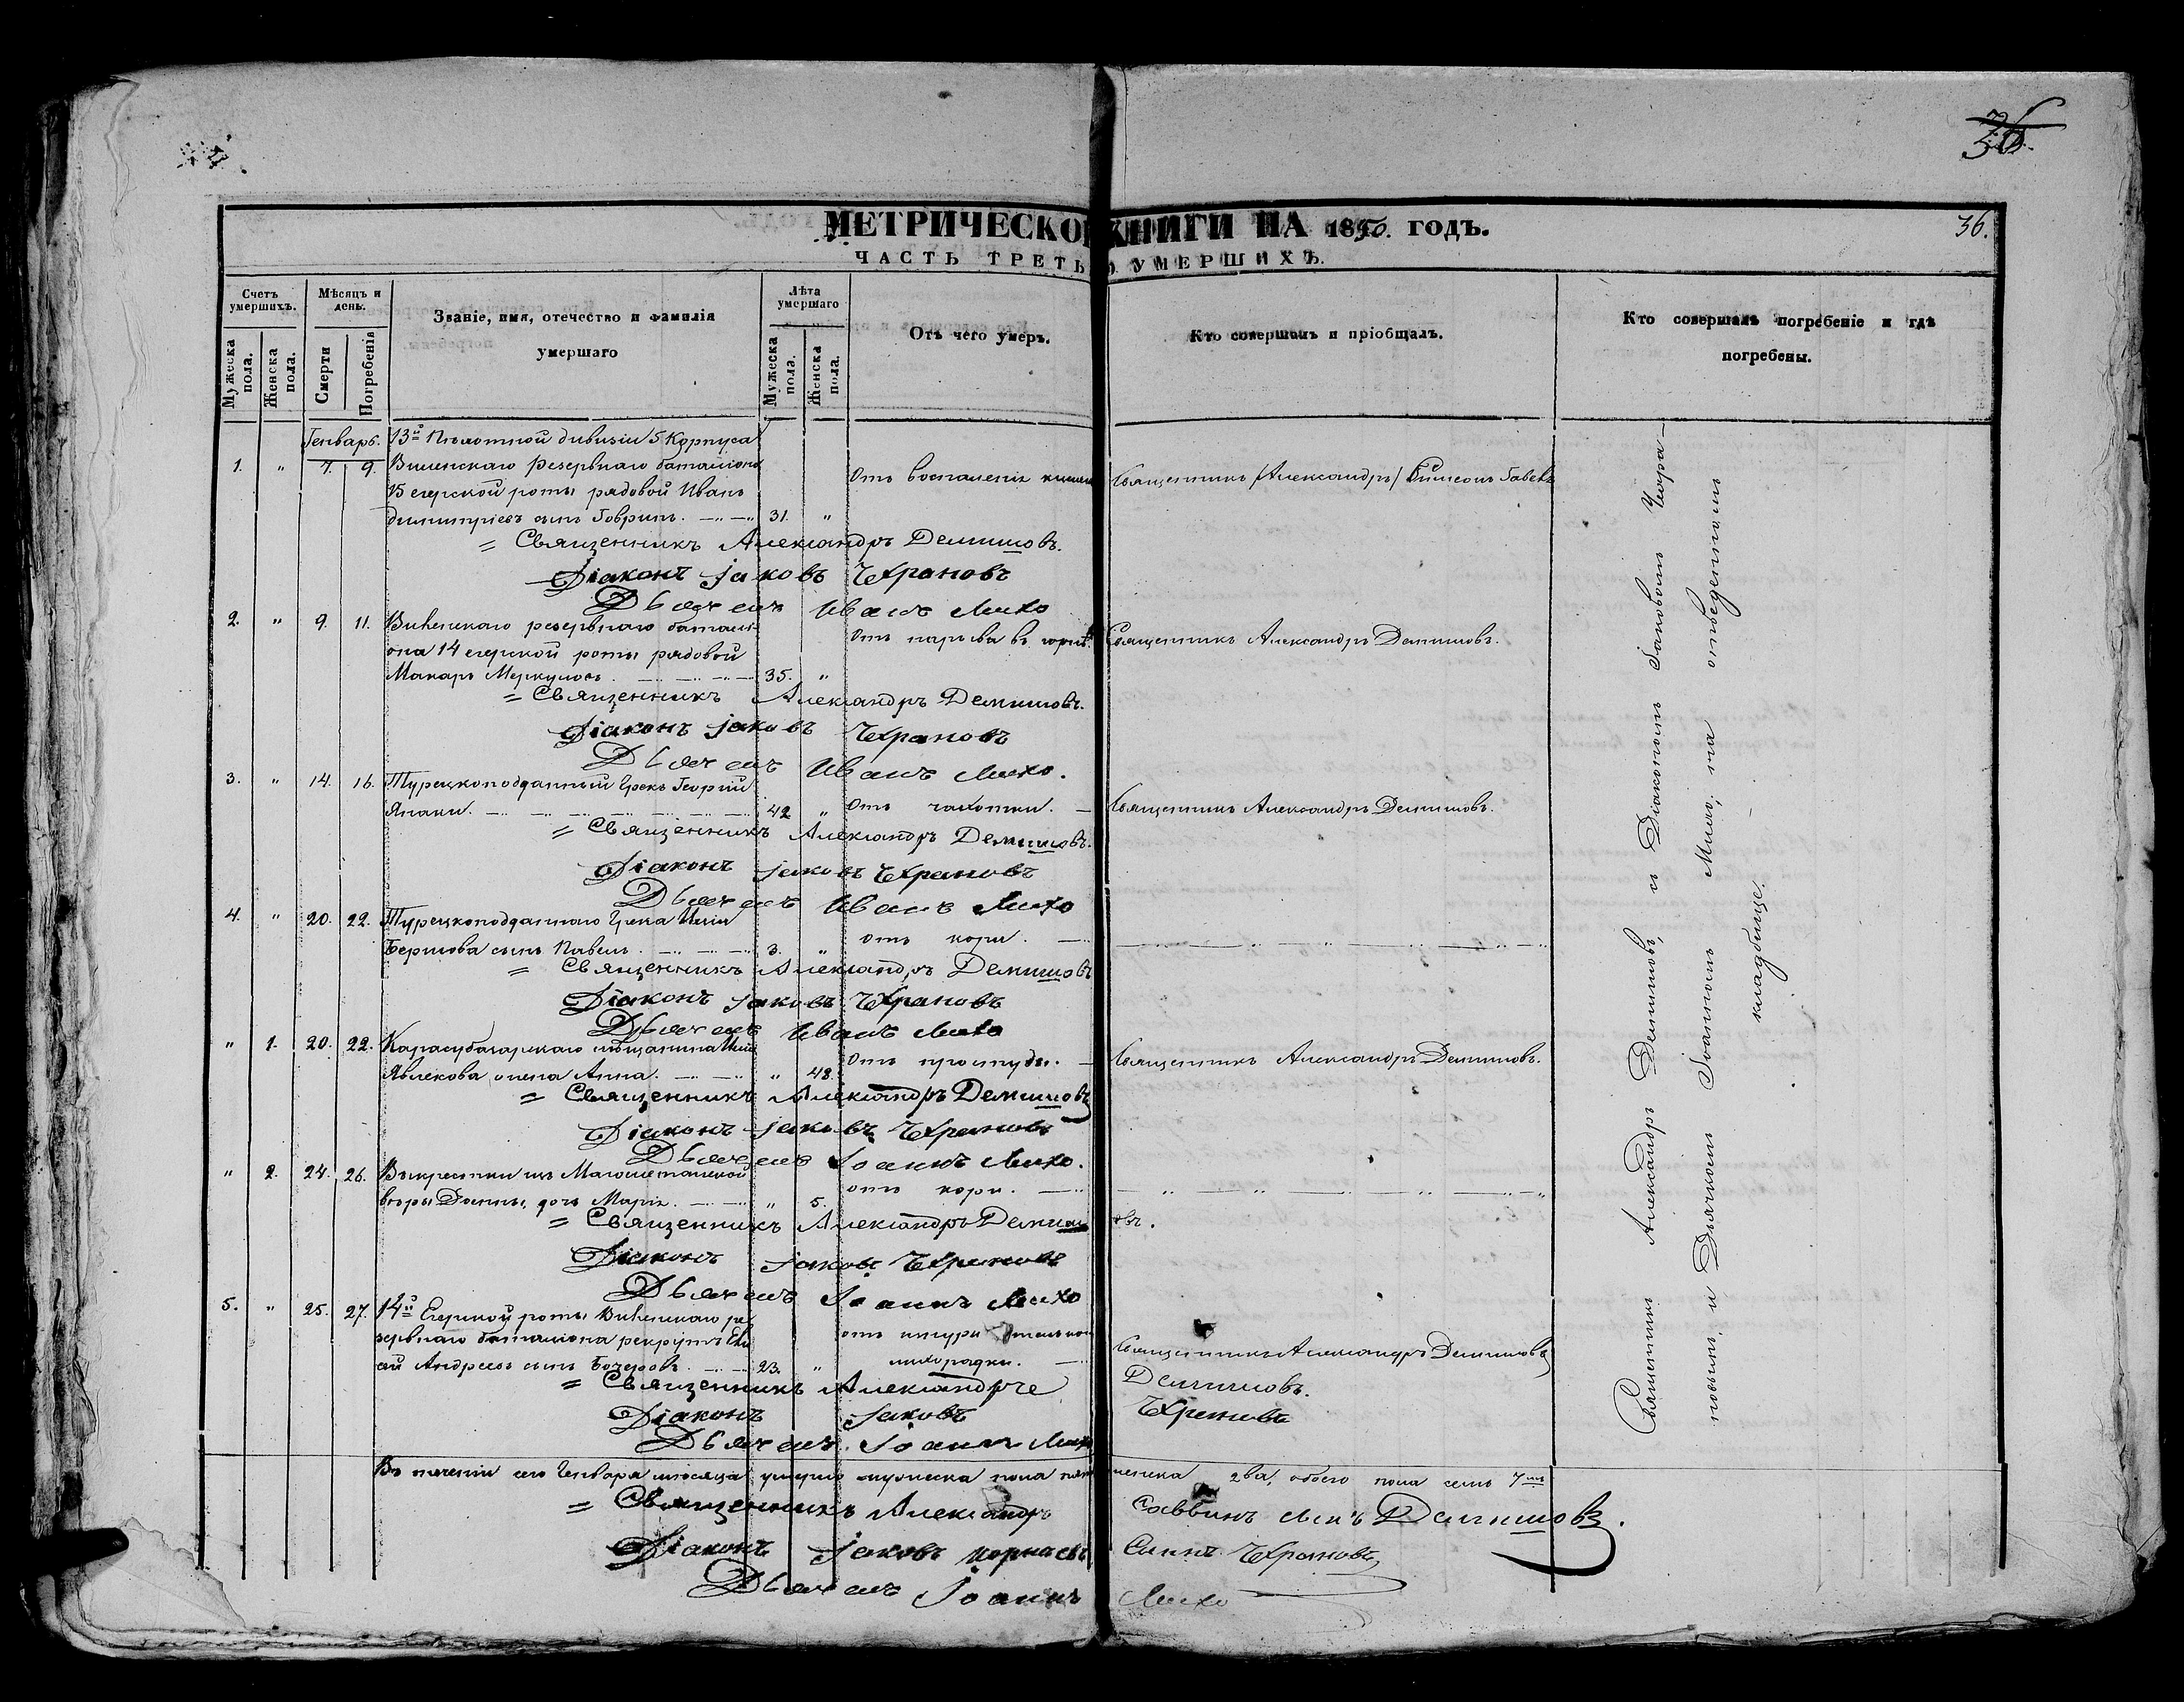 36.
МЕТРИЧЕСКОЙ КНИГИ НА 1850. ГОДЪ.
36.
ЧАСТЬ ТРЕТЬЯ УМЕРШИХЪ.
Счетъ умершихъ.
Мужеска пола.
Женска пола.
Мѣсяцъ и день.
Смерти
Погребенія
Званіе, имя, отечество и фамилія
умершаго
Лѣта умершаго
Мужеска пола.
Женска пола.
Отъ чего умеръ.
Кто совершалъ и пріобщалъ.
Кто совершалъ погребеніе и гдѣ
погребены.
Генварь.
13й Пѣхотной дивизіи 5 Корпуса
1. " 7. 9. Виленскаго резервнаго баталіона
15 егерской роты рядовой Иванъ
Димитріевъ сынъ 31. "
Отъ воспаленія
Священникъ /Александръ/
= Священникъ Александръ Демишовъ.
Діаконъ Іаковъ Чхрановъ
Дьячекъ Иванъ Михо
2. " 9. 11. Виленскаго резервнаго баталі-
она 14 егерской роты рядовой
Макаръ Меркуловъ. 35. "
Отъ нарыва въ горлѣ.
Священникъ Александръ Демишовъ.
= Священникъ Александръ Демишовъ.
Діаконъ Іаковъ Чхрановъ
Дьячекъ Иванъ Михо.
3. " 14. 16. Турецкоподданный Грекъ Георгій
Янаки. 42 " Отъ чахотки.
Священникъ Александръ Демишовъ.
= Священникъ Александръ Демишовъ.
Діаконъ Іаковъ Чхрановъ
Дьячекъ Иванъ Михо
4. " 20. 22. Турецкоподданнаго Грека Иліи
сынъ Павелъ. 3. " отъ кори.
= Священникъ Александръ Демишовъ
Діаконъ Іаковъ Чхрановъ
Дьячекъ Иванъ Михо
" 1. 20. 22. Карасубазарскаго мѣщанина Иліи
жена Анна. " 48. Отъ простуды.
Священникъ Александръ Демишовъ.
= Священникъ Александръ Демишовъ
Діаконъ Іаковъ Чхрановъ
Дьячекъ Іоаннъ Михо.
" 2. 24. 26. Выкрестки изъ Магометанской
вѣры дочь Марія. " 5. отъ кори.
= Священникъ Александръ Демишовъ.
Діаконъ Іаковъ Чхрановъ
Дьячекъ Іоаннъ Михо
5. " 25. 27. 14й Егерской роты Виленскаго ре-
зервнаго баталіона рекрутъ
Андреевъ сынъ 23. "
отъ
лихорадки.
Священникъ Александръ Демишовъ
= Священникъ Александръ Демишовъ.
Діаконъ Іаковъ Чхрановъ
Дьячекъ Іоаннъ Михо
Въ теченіи сего Генваря мѣсяца умерло мужеска пола пять женска два, обоего пола семь 7
= Священникъ Александръ Саввинъ Демишовъ.
Діаконъ Іаковъ Чхрановъ
Дьячекъ Іоаннъ Михо
Священникъ Александръ Демишовъ, и Діакономъ Іаковомъ Чхра-
новымъ, и Дьячкомъ Іоанномъ Михо, на отведенномъ
кладбище.